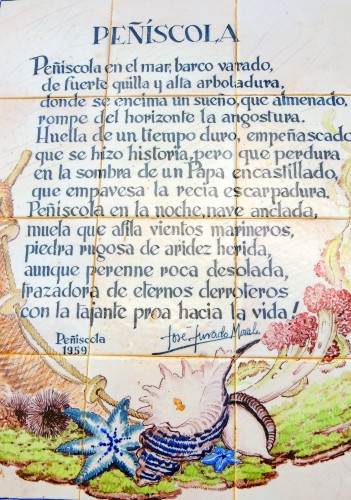 PEÑÍSCOLA
Peñíscola en el mar, barco varado,
de fuerte quilla y alta arboladura,
donde se encima un sueño, que almenado,
rompe del horizonte la angostura.
Huella de un tiempo duro, empeñascado
que se hizo historia, pero que perdura
en la sombra de un Papa encastillado,
que empavesa la recia escarpadura.
Peñíscola en la noche, nave anclada,
muela que afila vientos marineros,
piedra rugosa de aridez herida,
aunque perenne roca desolada,
trazadora de eternos derroteros
con la tajante proa hacia la vida!
Peñíscola
1959
José Jurado Morales